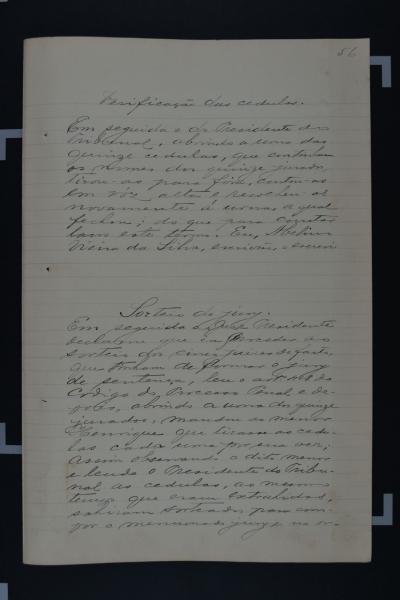 56
Verificação das cedulas.
Em seguida o dr Presidente do
Tribunal, abrindo a urna das
quinze cedulas, que continham
os nomes dos quinze jurados,
tirou-as para fóra, contou-as
em voz alta e recolheu-as
novamente á urna, a qual
fechou; do que para constar
lavro este termo. Eu,
Vieira da Silva, escrivão, o escrevi
Sorteio do jury.
Em seguida o Presidente
declarou que ia proceder ao
sorteio dos cinco juizes de facto,
que tinham de formar o jury
de sentença, leu o art do
Codigo do Processo Penal e de-
pois, abrindo a urna dos quinze
jurados, mandou ao menor
Henrique que tirasse as cedu-
las cada uma por sua vez;
Assim observando o dito menor
e lendo o Presidente do Tribu-
nal as cedulas, ao mesmo
tempo que eram extrahidas,
sahiram sorteados para com-
por o mencionado jury e na or-